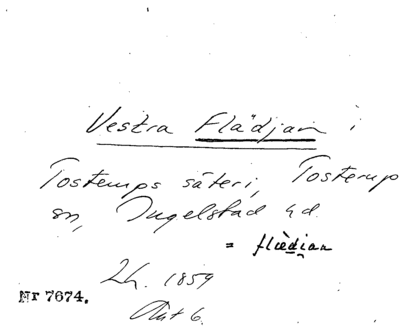 Vestra Flädjan i
Tostemps säteri, Tosterup
sn, Ingelstad hd.
= flièdian
Lh. 1859
Akt 6.
Nr 7674.